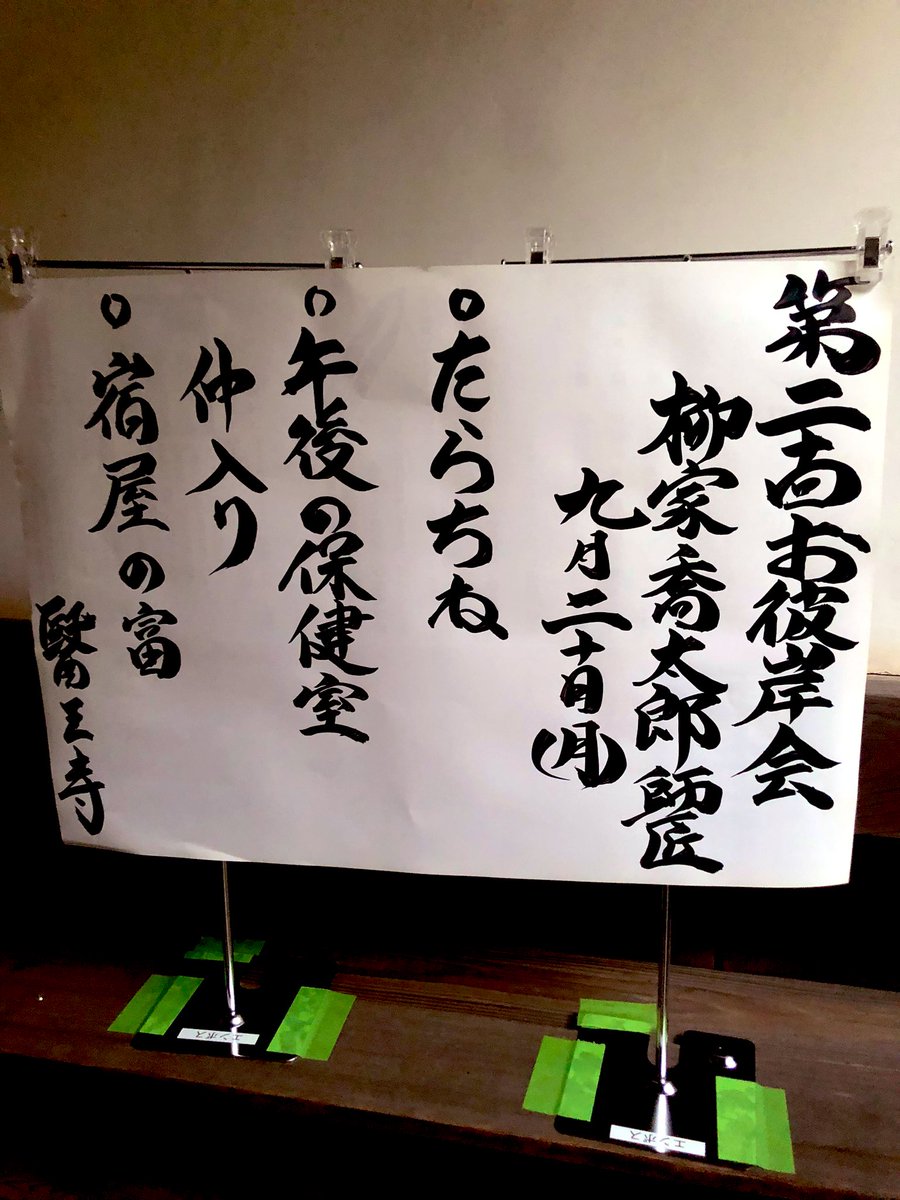 第二回お彼岸会
柳家喬太郎師匠
九月二十日(月)
○たらちね
○午後の保健室
仲入り
○宿屋の富
醫王寺
エンボス
エンボス